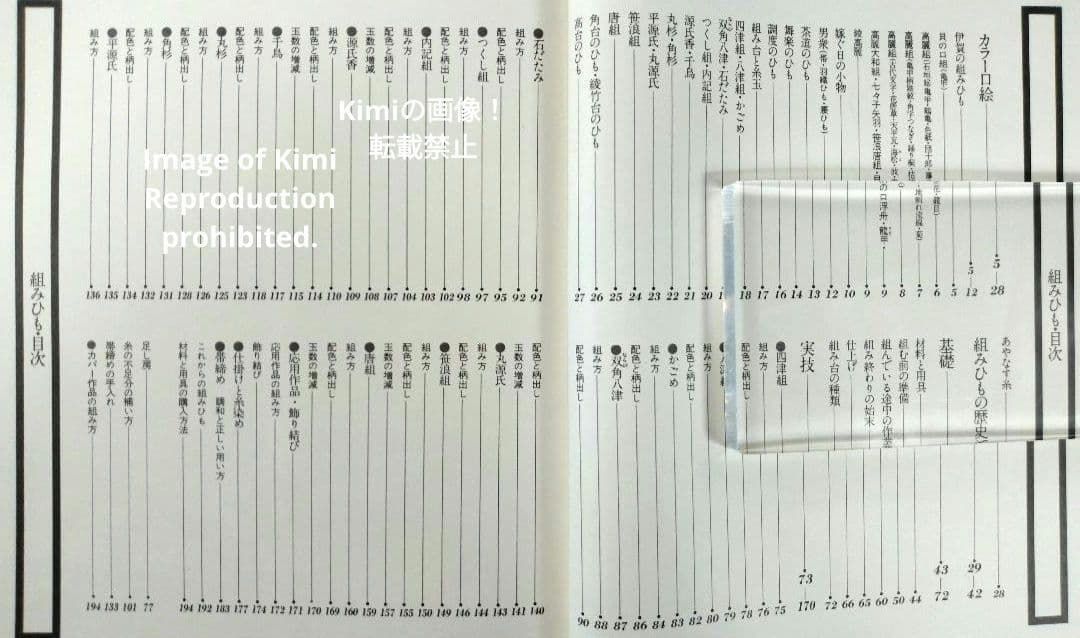 組みひも・目次
カラー口絵 5 28
伊賀の組みひも 5 12
貝の口組(亀甲) 5
高麗組(石垣 亀甲・鶴亀・色紙・団十郎 6
高麗組(亀甲 7
高麗組(古代文字・花 8
高麗大和組・七々子矢羽・笹浪唐組 9
綾高麗 9
嫁ぐ日の小物 10
男衆(帯・羽織ひも・腰ひも) 12
茶道のひも 13
舞楽のひも 14
調度のひも 16
組み台と糸玉 17
四津組・八津組・かごめ 18
双角八津・石だたみ
つくし組・内記組 20
源氏香・千鳥 21
丸杉・角杉 22
平源氏・丸源氏 23
笹浪組 24
唐組 25
角台のひも・綾竹台のひも 26
高台のひも 27
あやなす糸 28
組みひもの歴史 29 42
基礎 43 72
材料と用具 44
組む前の準備 50
組んでいる途中の作業 60
組み終わりの始末 65
仕上げ 66
組み台の種類 72
実技 73 170
●四津組 75
組み方 76
配色と柄出し 78
●八津組 79
組み方 80
配色と柄出し 82
●かごめ 83
組み方 84
配色と柄出し 86
●双角八津 87
組み方 88
配色と柄出し 90
●石だたみ 91
組み方 92
配色と柄出し 95
●つくし組 97
組み方 98
配色と柄出し 102
●内記組 103
組み方 104
配色と柄出し 107
玉数の増減 108
●源氏香 109
組み方 110
配色と柄出し 114
玉数の増減 115
●千鳥 117
組み方 118
配色と柄出し 123
●丸杉 125
組み方 126
配色と柄出し 128
●角杉 131
組み方 132
配色と柄出し 134
●平源氏 135
組み方 136
配色と柄出し 140
玉数の増減 141
●丸源氏 143
組み方 144
配色と柄出し 146
●笹浪組 149
組み方 150
配色と柄出し 155
玉数の増減 157
●唐組 159
組み方 160
配色と柄出し 169
玉数の増減 170
●応用作品・飾り結び 171
応用作品の組み方 172
飾り結び 174
●仕掛けと糸染め 177
●帯締め 調和と正しい用い方 183
これからの組みひも 192
材料と用具の購入方法 194
足し房 77
糸の不足分の補い方 101
帯締めの手入れ 133
●カバー作品の組み方 194
組みひも・目次
Kimiの画像！
転載禁止
Image of Kimi
Reproduction
prohibited.